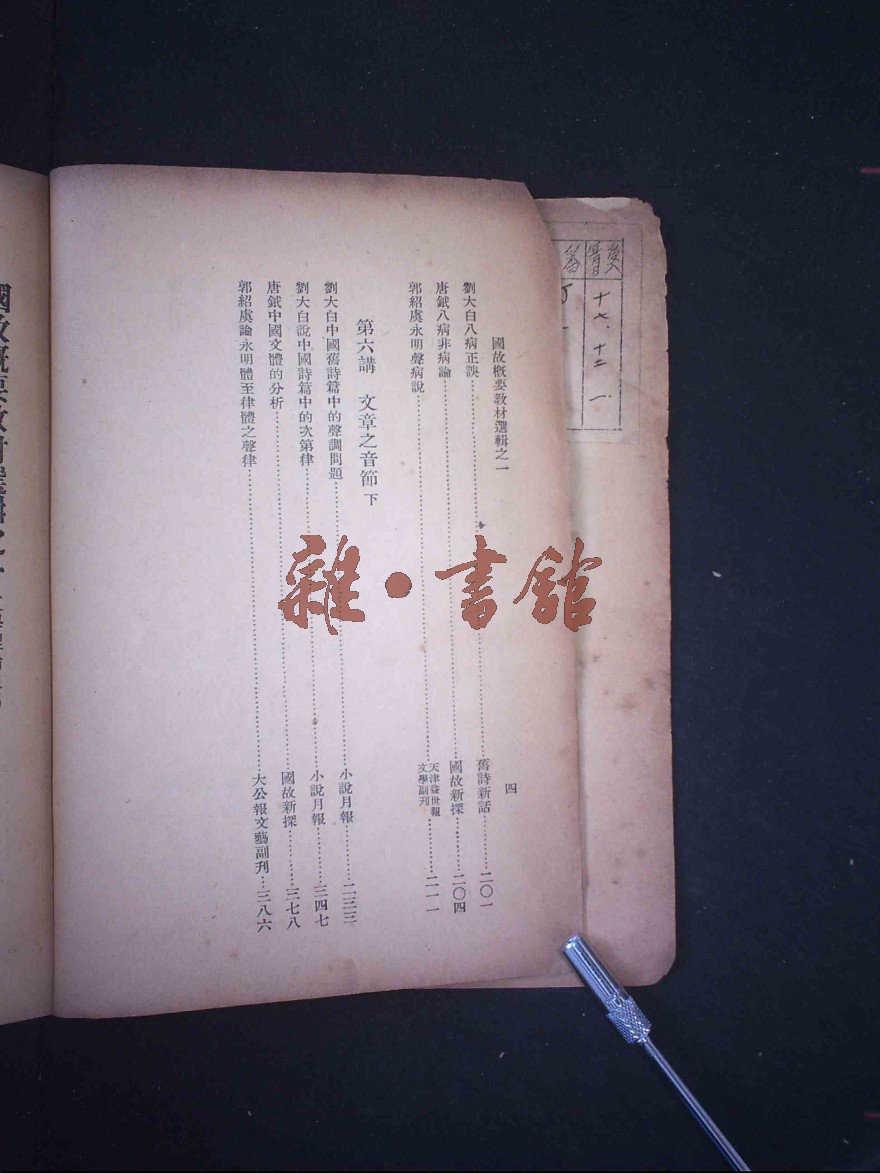 國故概要教材選輯之一
四
劉大白八病正誤……舊詩新話……二〇一
唐鉞八病非病論……國故新探……二〇四
郭紹虞永明聲病說……天津益世報文學副刊……二一一
第六講 文章之音節 下
劉大白中國舊詩篇中的聲調問題……小說月報……二三三
劉大白說中國詩篇中的次第律……小說月報……三四七
唐鉞中國文體的分析……國故新探……三七八
郭紹虞論永明體至律體之聲律……大公報文藝副刊…三八六
雜·書館
十七、十二 一